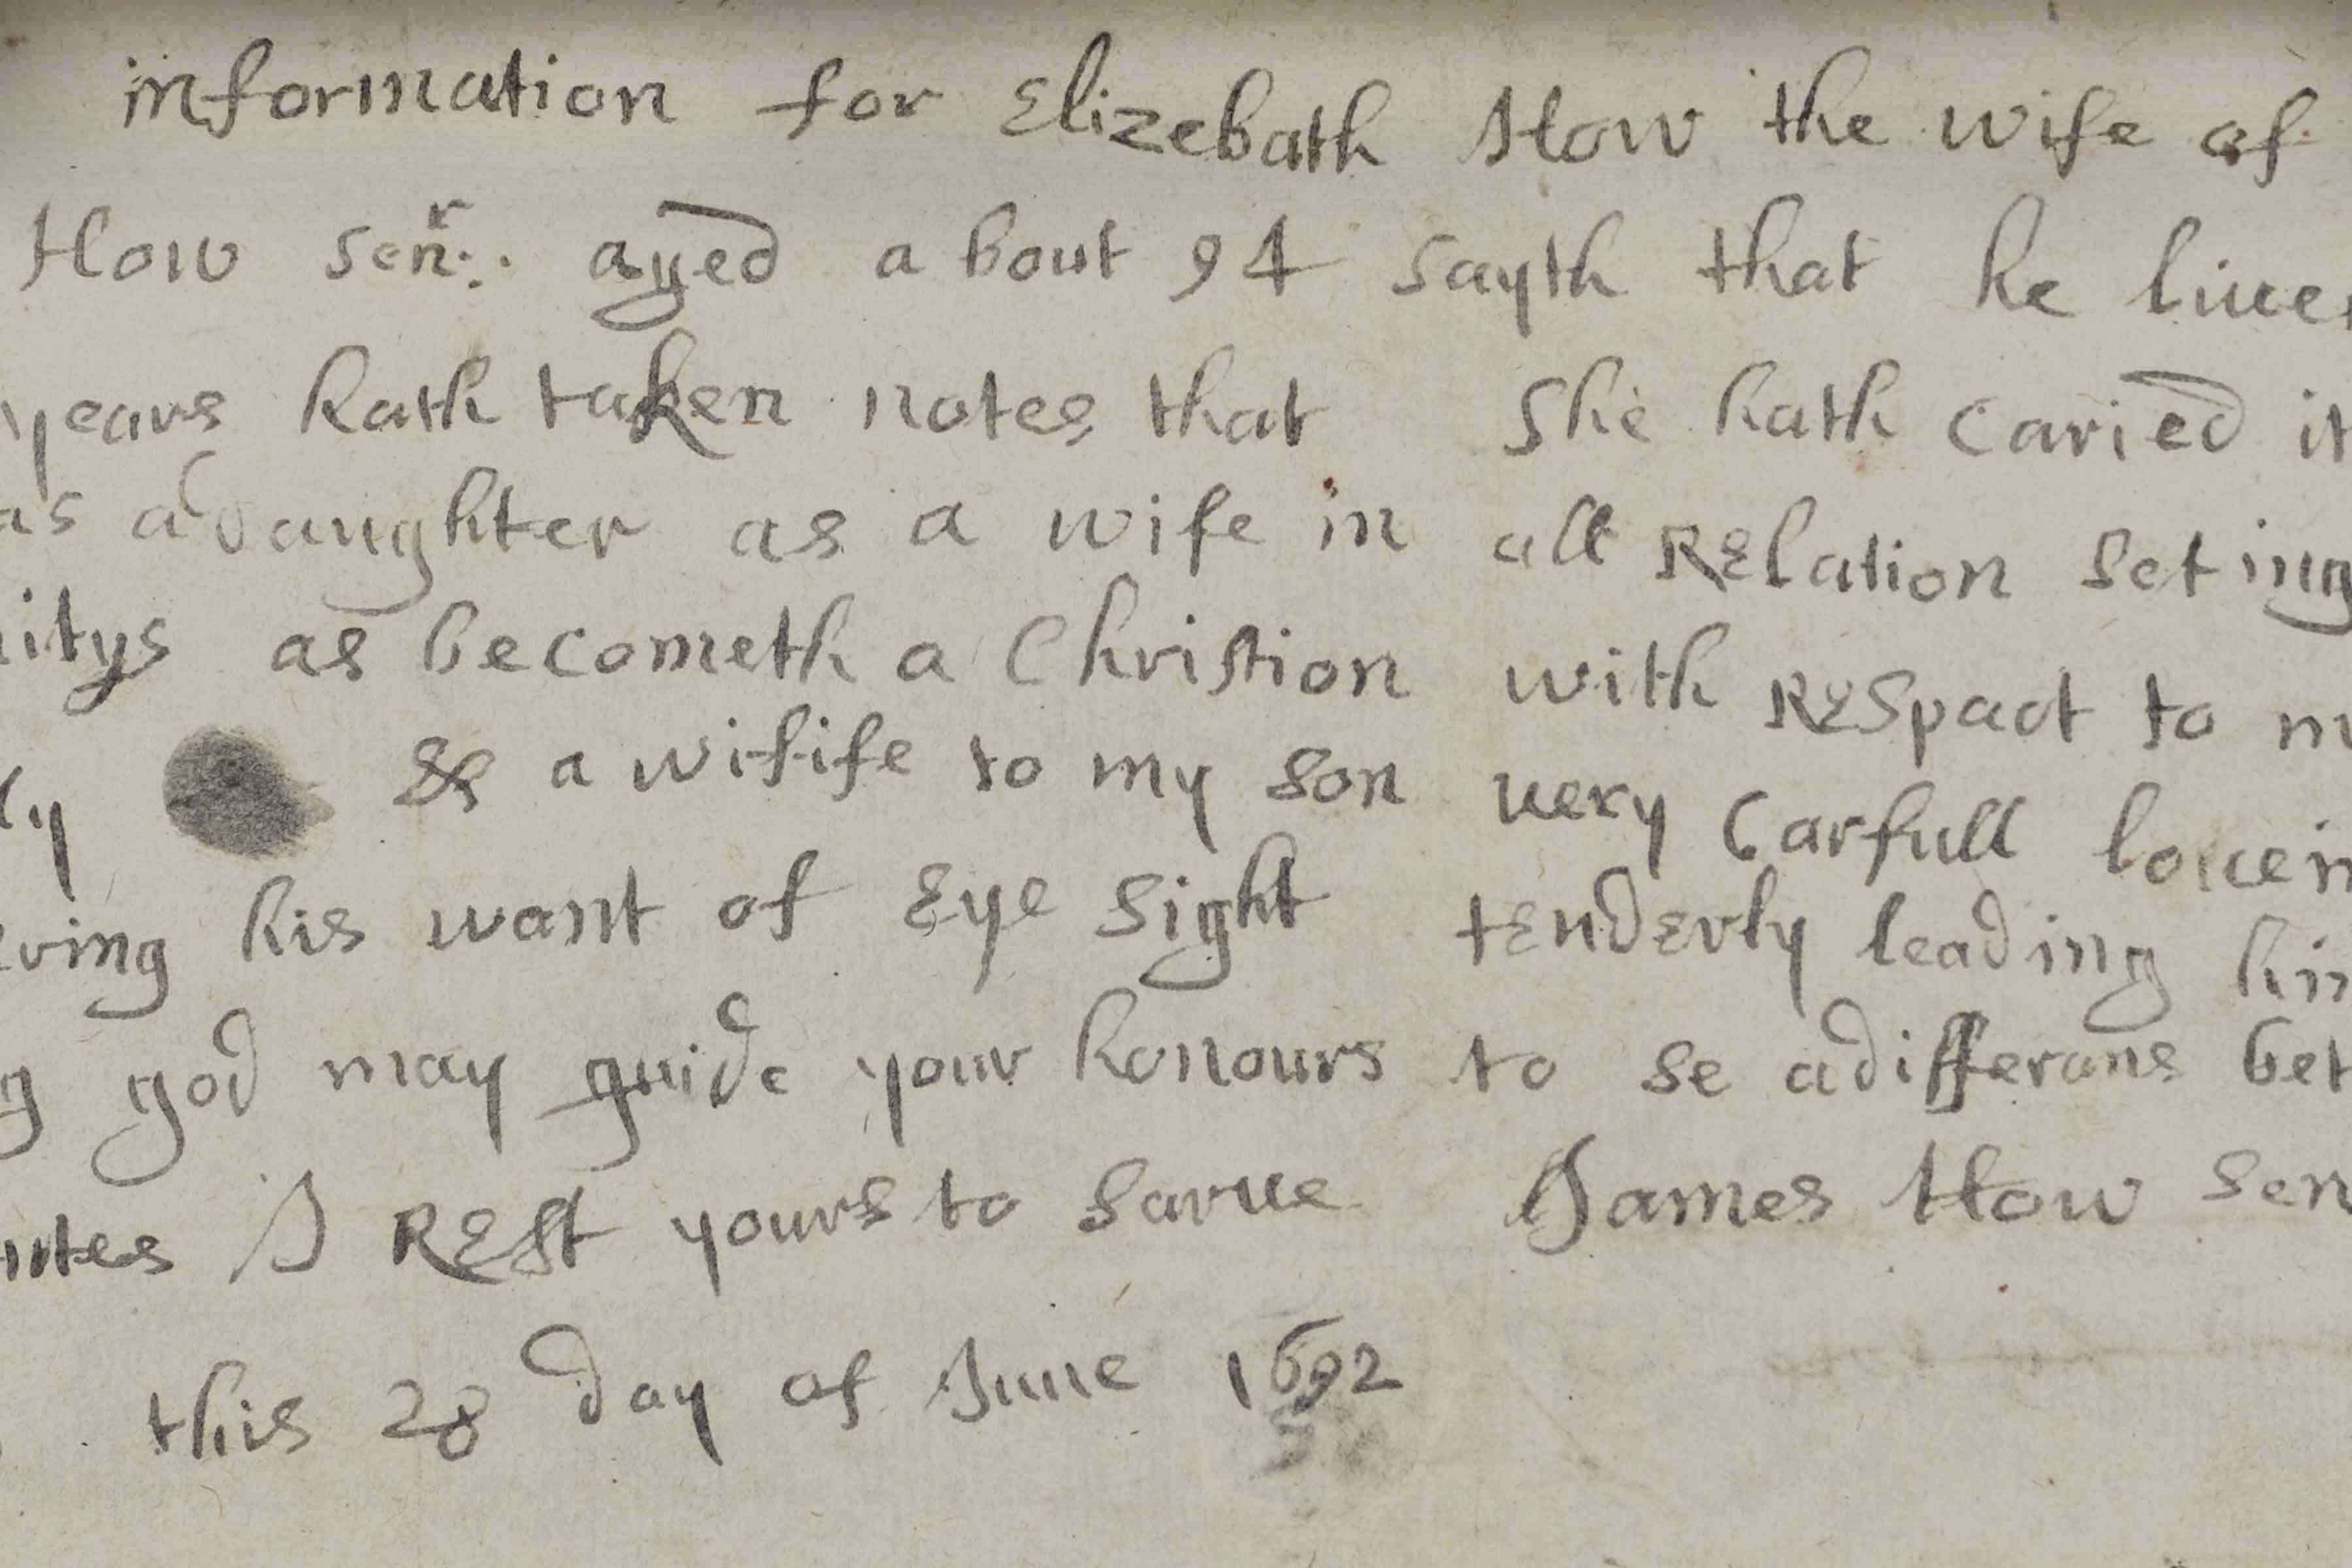 information for Elizebath How the wife of
How Senr: aged a bout 94 sayth that he liue
years hath taken notes that She hath caried it
as a daughter as a wife in all RElation seting
itys as becometh a Christion with Respact to m
ly & a wifife to my son uery Carfull louein
ving his want of Eye sight tEndErly leading hi
g god may guide your honours to se a differans bet
ntes I REst yours to Sarue James How sen
this 28 day of June 1692